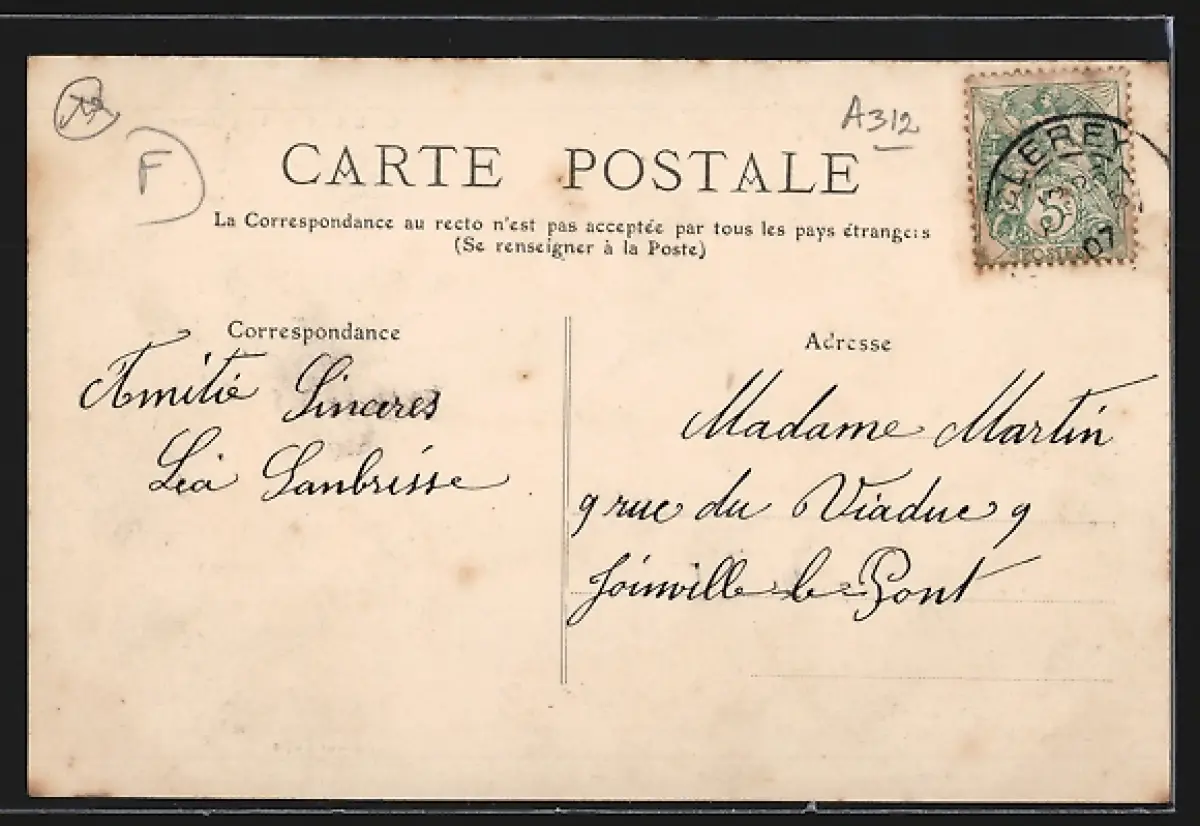 A312
F
CARTE POSTALE
La Correspondance au recto n'est pas acceptée par tous les pays étrangers
(Se renseigner à la Poste)
LLEREY
07
5
POSTES
Correspondance
Amitié Sincères
Léa Lanbrisse
Adresse
Madame Martin
9 rue du Viaduc 9
Joinville-le-Pont